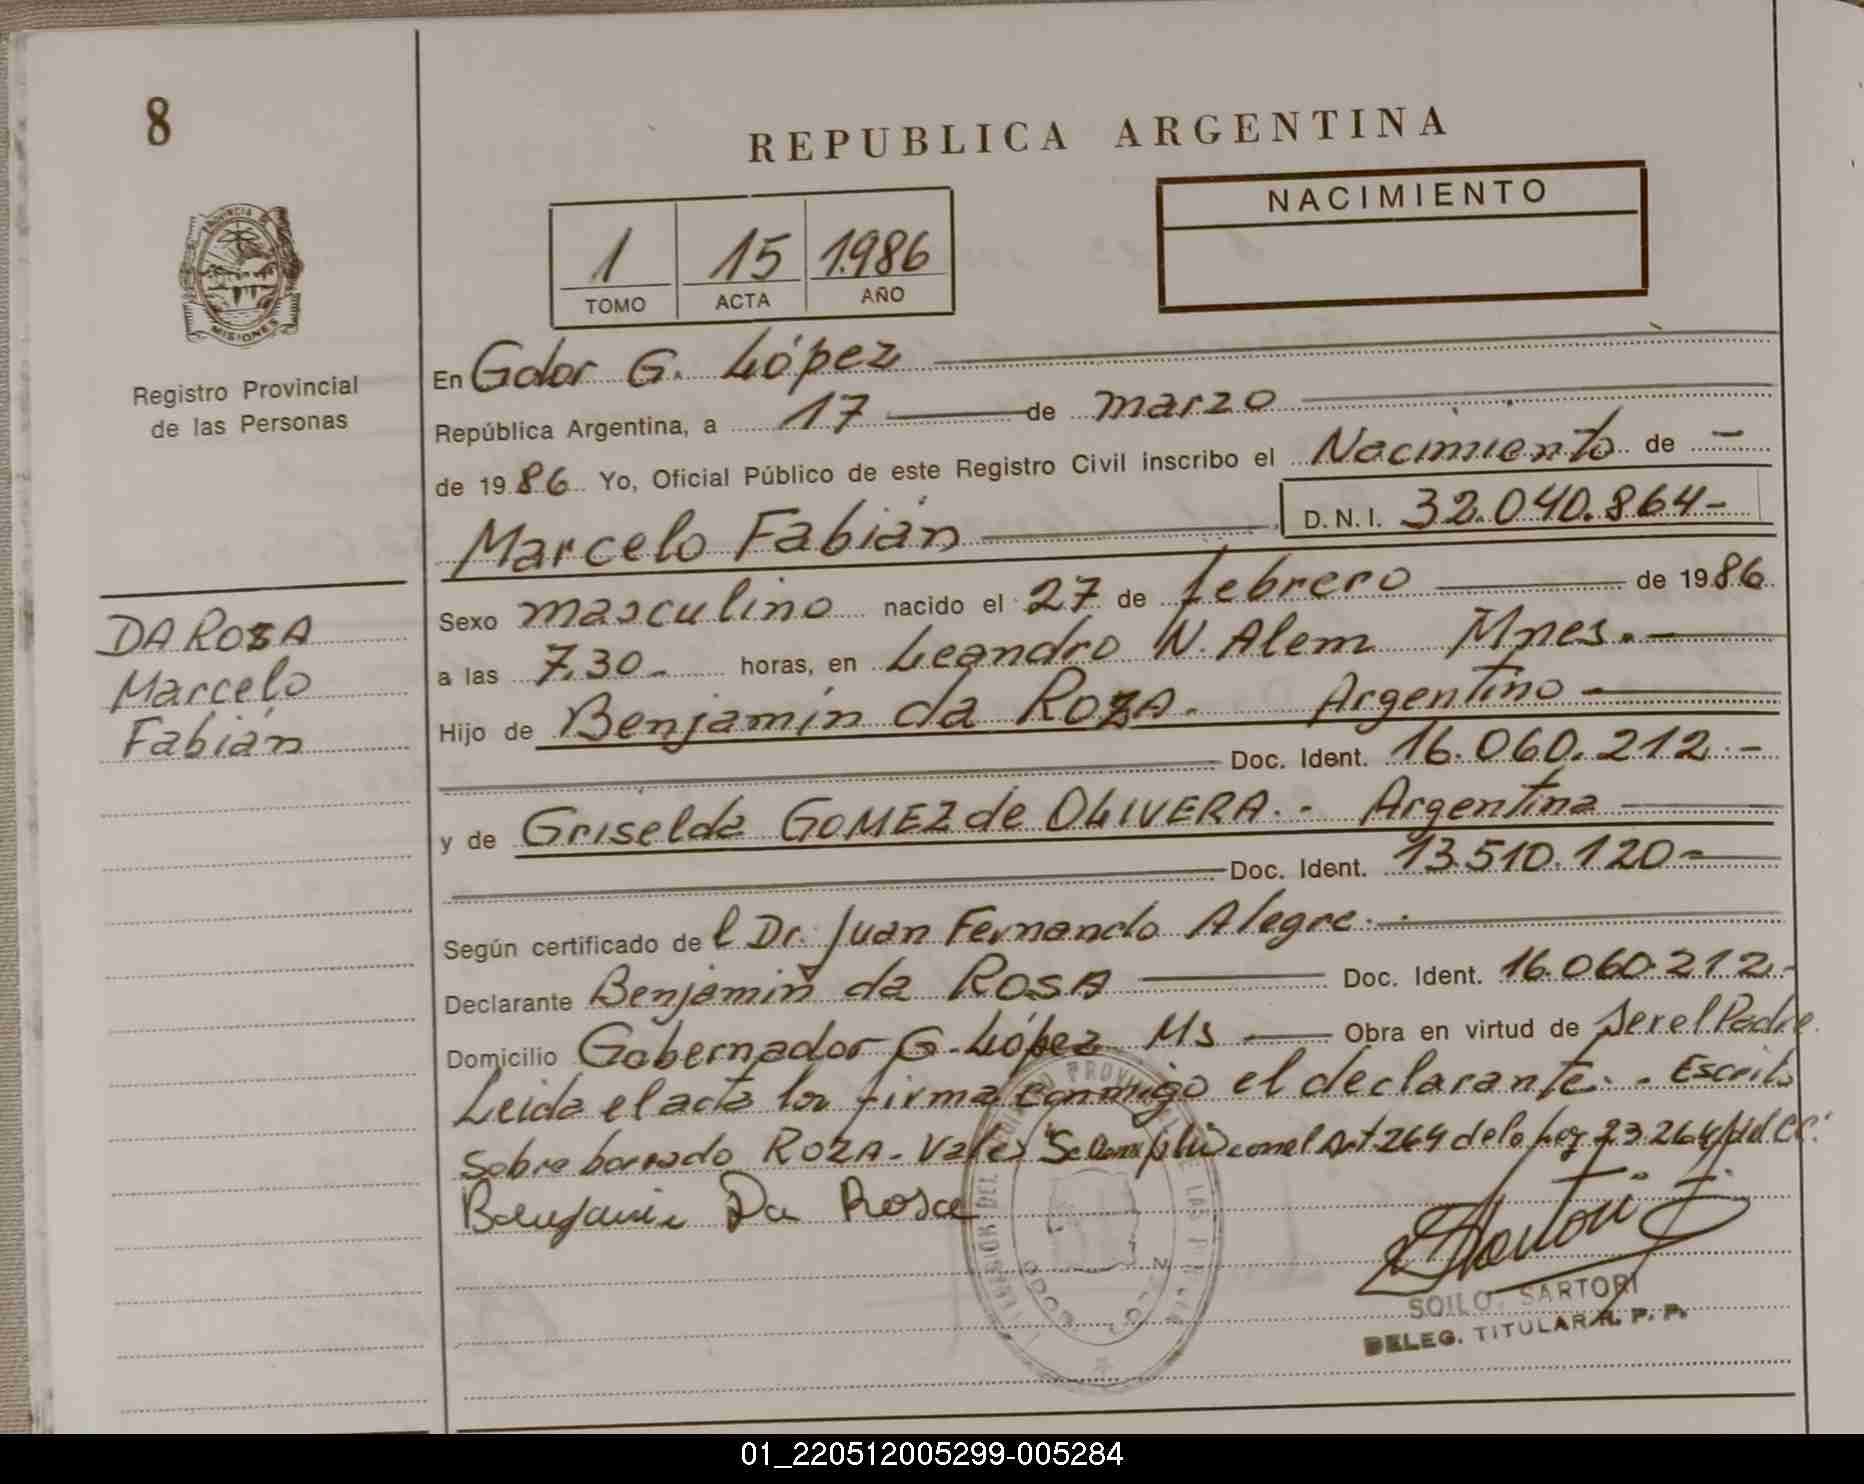 8
REPUBLICA ARGENTINA
NACIMIENTO
1 15 1.986
TOMO ACTA AÑO
PROVINCIA DE
MISIONES
Registro Provincial
de las Personas
En Gdor G. López
República Argentina, a 17 de marzo
de 1986 Yo, Oficial Público de este Registro Civil inscribo el Nacimiento de -
Marcelo Fabián D.N.I. 32.040.864-
DA ROSA
Marcelo
Fabián
Sexo masculino nacido el 27 de febrero de 1986
a las 7.30- horas, en Leandro N. Alem Mnes.-
Hijo de Benjamín da ROZA. Argentino-
Doc. Ident. 16.060.212.-
y de Griselda GOMEZ de OLIVERA.- Argentina
Doc. Ident. 13.510.120-
Según certificado del Dr. Juan Fernando Alegre.-
Declarante Benjamín da ROSA Doc. Ident. 16.060.212.-
Domicilio Gobernador G. López Ms Obra en virtud de ser el Padre
Leida el acta la firma conmigo el declarante.- Escrito
Sobre borrado ROZA. Vale con el Art. 264 de la Ley 23.264 del CC.
Benjamin Da Rosa
SOILO SARTORI
DELEG. TITULAR R. P. P.
01_220512005299-005284